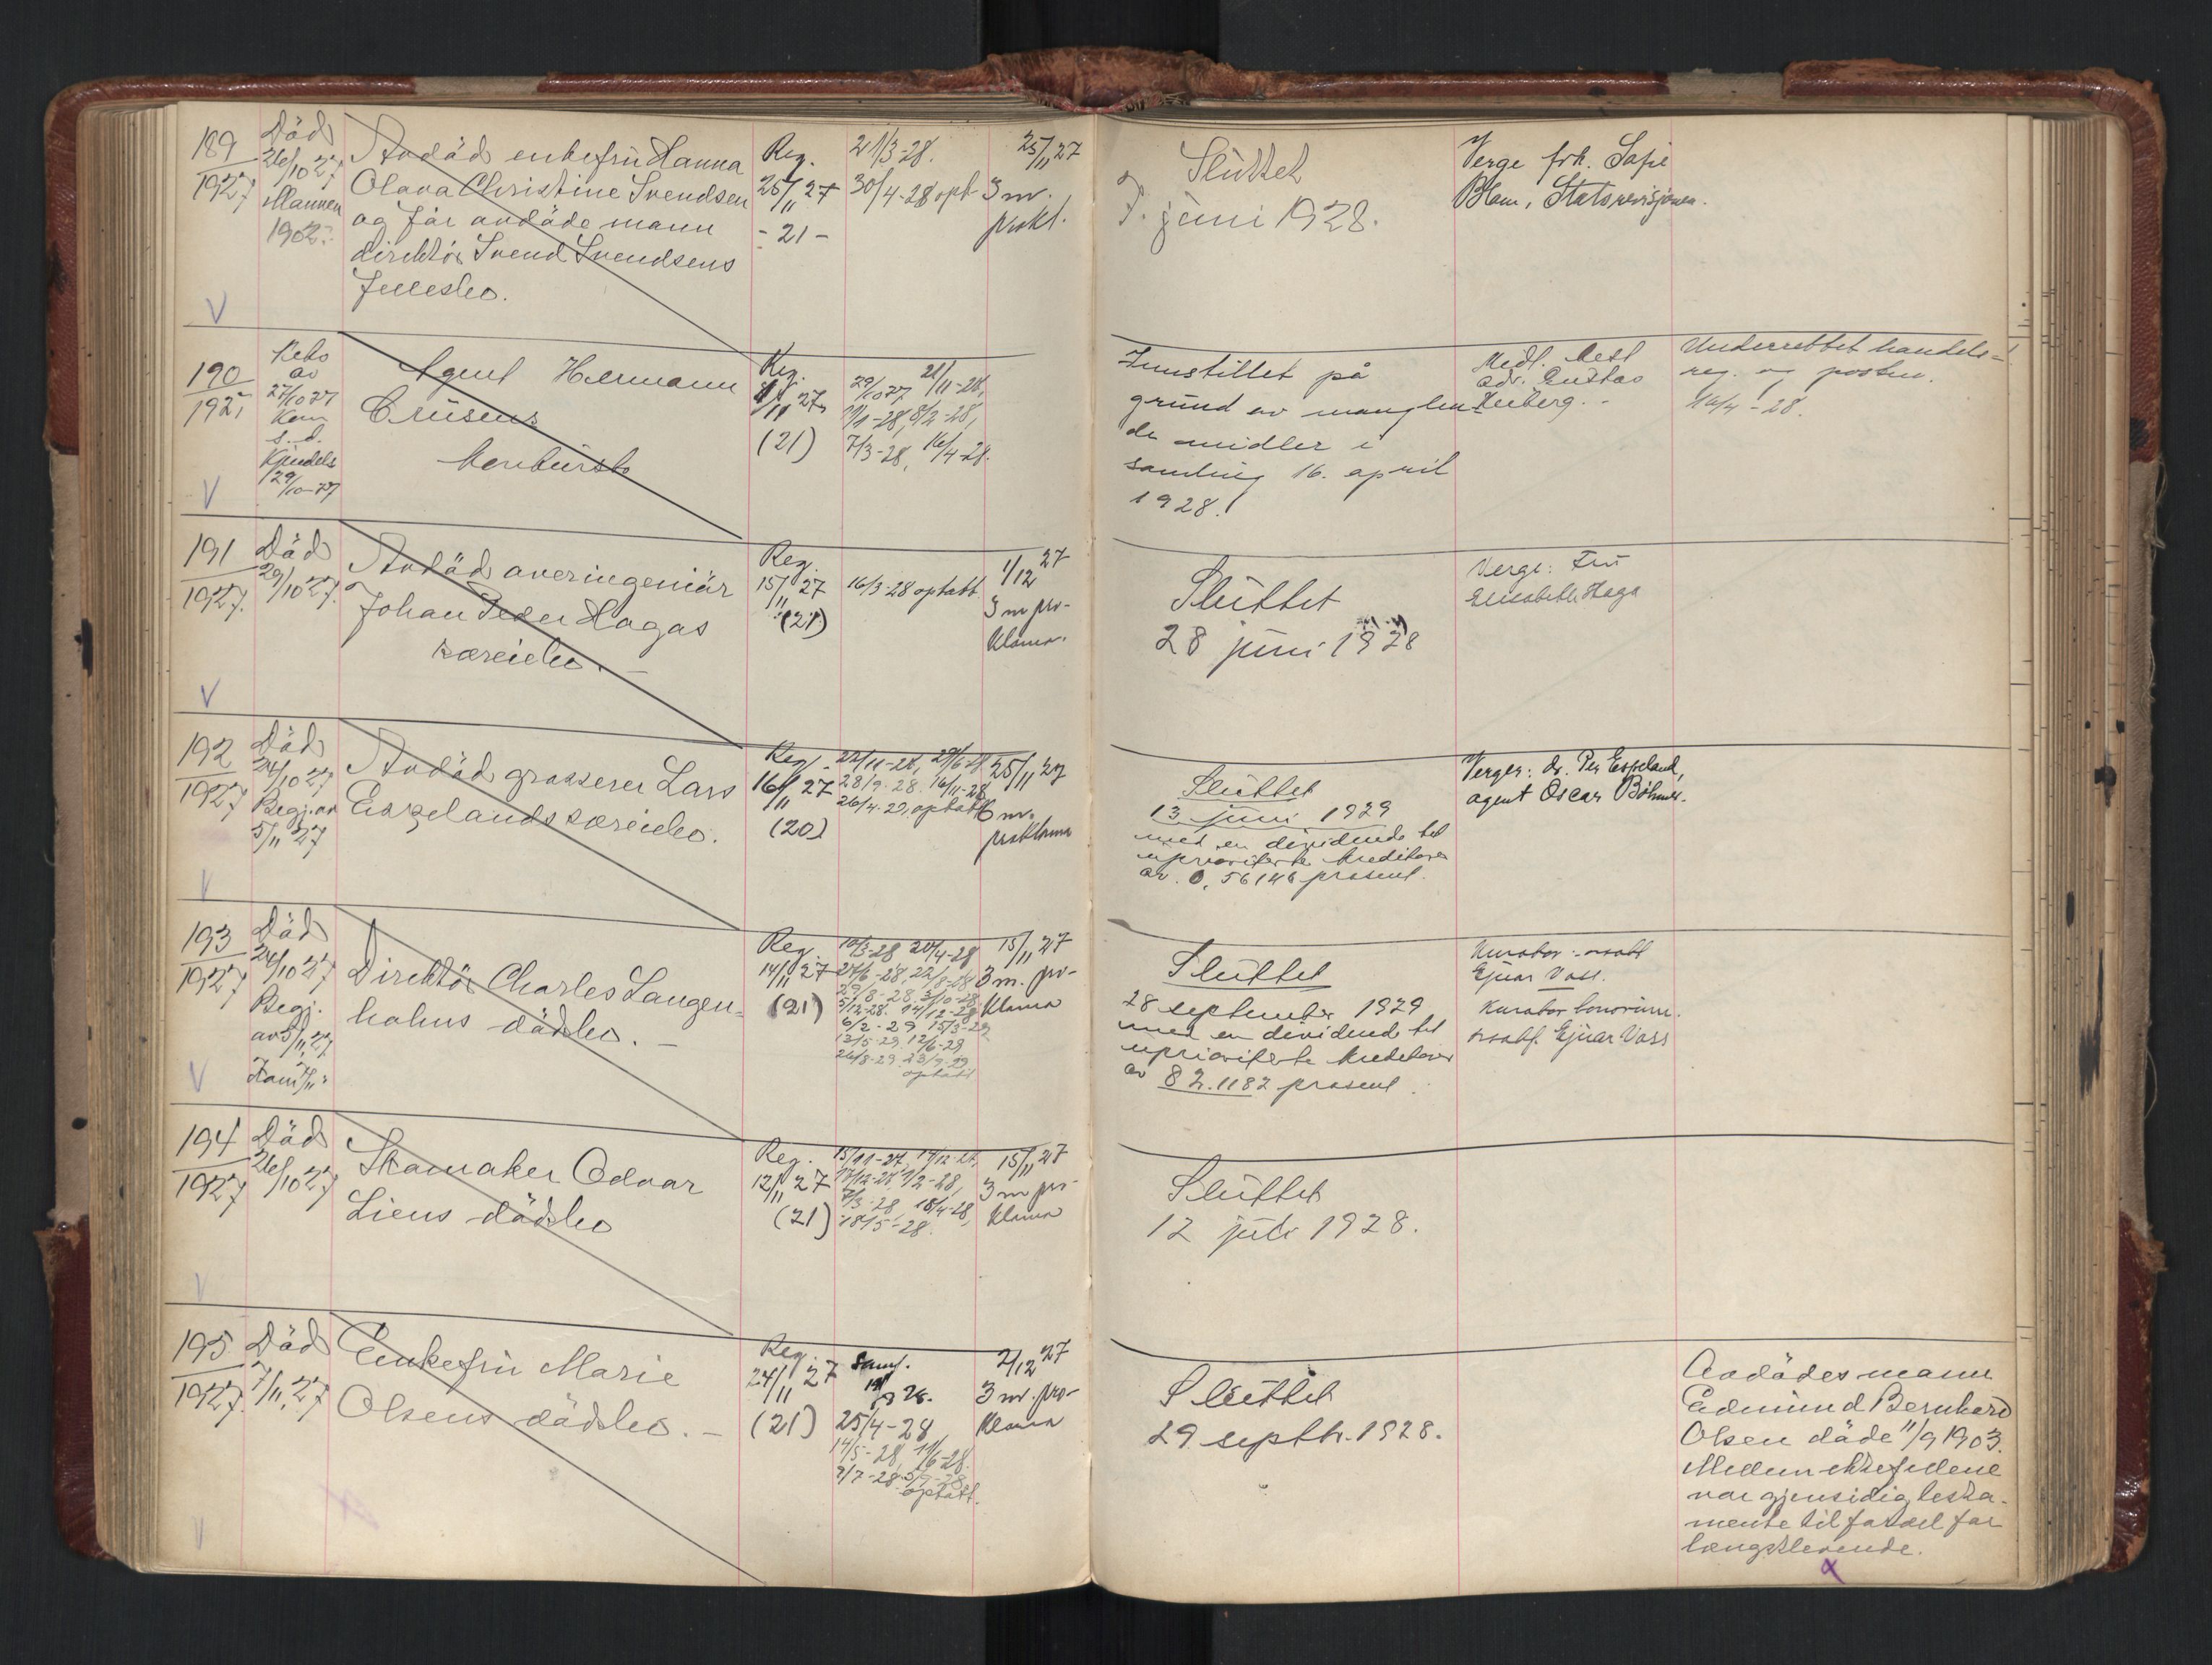 189
1927
Död
26/10 27
Mannen
1902.
Avdöd enkefru Hanna
Olava Christine Svendsen
og før avdöde mann
direktör Svend Svendsens
fellesbo.
Reg.
25/11 27
- 21 -
21/3-28.
30/4-28 opt
25/11 27
3 m.
prokl.
Sluttet
7. juni 1928.
Verge frk. Sofie
Blom, Statsrevisjonen.
V
190
1927
av
27/10 27
s. d.
Kjendels
29/10-27
Agent Hermann
Crusens
konkursbo
Reg.
1/11 27
(21)
29/10 27, 21/11-27,
11/1-28, 8/2-28,
7/3-28, 16/4-28.
Innstillet på
grund av manglen-
de midler i
samling 16. april
1928.
Medl. best
adv. Gustav
Heiberg.
Underrettet handels-
reg. og posten.
16/4-28.
V
191
1927.
Död
29/10 27.
Avdöd overingeniör
Johan Peder Hagas
særeiebo. -
Reg.
15/11 27
(21)
16/3-28 optatt
1/12 27
3 m pro-
klama.
Sluttet
28 juni 1928
Verge: Fru
Elisabeth Haga
V
192
1927
Död
24/10 27
Begj. av
5/11 27
Avdöd grosserer Lars
Espelands særeiebo.
Reg.
16/11 27
(20)
28/9-28. 16/11-28
26/4-29, optatt
25/11 27
6 m.
proklama
Sluttet
13 juni 1929
med en dividende til
uprioriterte kreditorer
av 0,56146 prosent.
Verger: dr. Per Espeland,
agent Oscar Böhmer.
V
193
1927
Död
24/10 27
Begj.
av 5/11 27
Direktör Charles Langen-
holms dödsbo. -
Reg.
14/11 27
(21)
10/3-28 20/4-28
27/6-28, 22/8-28
29/8-28. 3/10-28
5/12-28. 14/12-28
6/2-29 15/3-29
13/5-29, 12/6-29
26/8-29. 23/9-29
optatt
15/11 27
3 m. pro-
klama
Sluttet
28 september 1929
med en dividende til
uprioriterte kreditorer
av 82.1182 prosent.
Kurator: o.r.sakf
Ejnar Vass.
Kurator bonorum.
o.r.sakf. Ejnar Vass
V
194
1927
Död
26/10 27
Skomaker Odvar
Liens dödsbo
Reg.
12/11 27
(21)
15/11-27, 14/12-27,
17/12-27, 1/2-28,
7/3-28, 18/4-28,
18/5-28.
15/11 27
3 m pro-
klama
Sluttet
12 juli 1928.
V
195
1927.
Död
7/11 27
Enkefru Marie
Olsens dödsbo. -
Reg.
24/11 27
(21)
Saml.
25/4-28
14/5-28, 11/6-28.
9/7-28. 5/9-28
optatt.
2/12 27
3 m. pro-
klama
Sluttet
29 septbr. 1928.
Avdödes mann
Edmund Bernhard
Olsen döde 11/9 1903.
Mellem ektefellene
var gjensidig testa-
mente til fordel for
længstlevende.
V